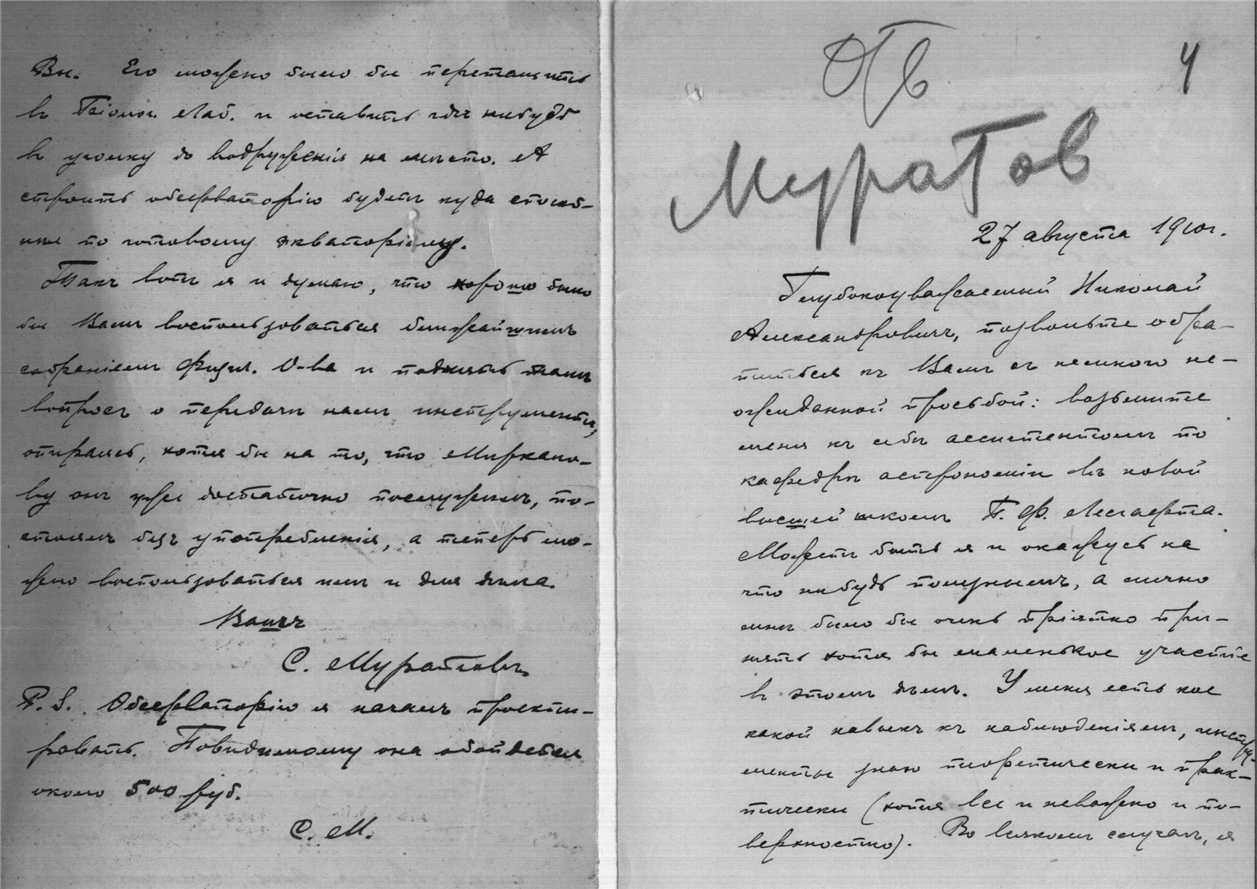 Вы. Его можно было бы перетащить
въ Біолог. Лаб. и оставить гдѣ нибудь
въ уголку до водруженія на мѣсто. А
строить обсерваторію будетъ куда способ-
нѣе по готовому экваторіалу.
Такъ вотъ я и думаю, что хорошо было
бы Вамъ воспользоваться ближайшимъ
собраніемъ Физ. О-ва и поднять тамъ
вопросъ о передачѣ намъ инструмента,
опираясь, хотя бы на то, что Мирхано-
ву онъ уже достаточно послужилъ, по-
стоялъ безъ употребленія, а теперь мо-
жно воспользоваться имъ и для дѣла.
Вашъ
С. Муратовъ
P.S. Обсерваторію я началъ проекти-
ровать. Повидимому она обойдется
около 500 руб.
С. М.
Отв
4
Муратов
27 августа 1910г.
Глубокоуважаемый Николай
Александровичъ, позвольте обра-
титься къ Вамъ съ немного не-
ожиданной просьбой: возьмите
меня къ себѣ ассистентомъ по
кафедрѣ астрономіи въ новой
высшей школѣ П. Ф. Лесгафта.
Можетъ быть я и окажусь на
что нибудь полезнымъ, а лично
мнѣ было бы очень пріятно при-
нять хотя бы маленькое участіе
въ этомъ дѣлѣ. У меня есть кое
какой навыкъ къ наблюденіямъ, инстру-
менты знаю теоретически и прак-
тически (хотя все и неважно и по-
верхностно). Во всякомъ случаѣ, я